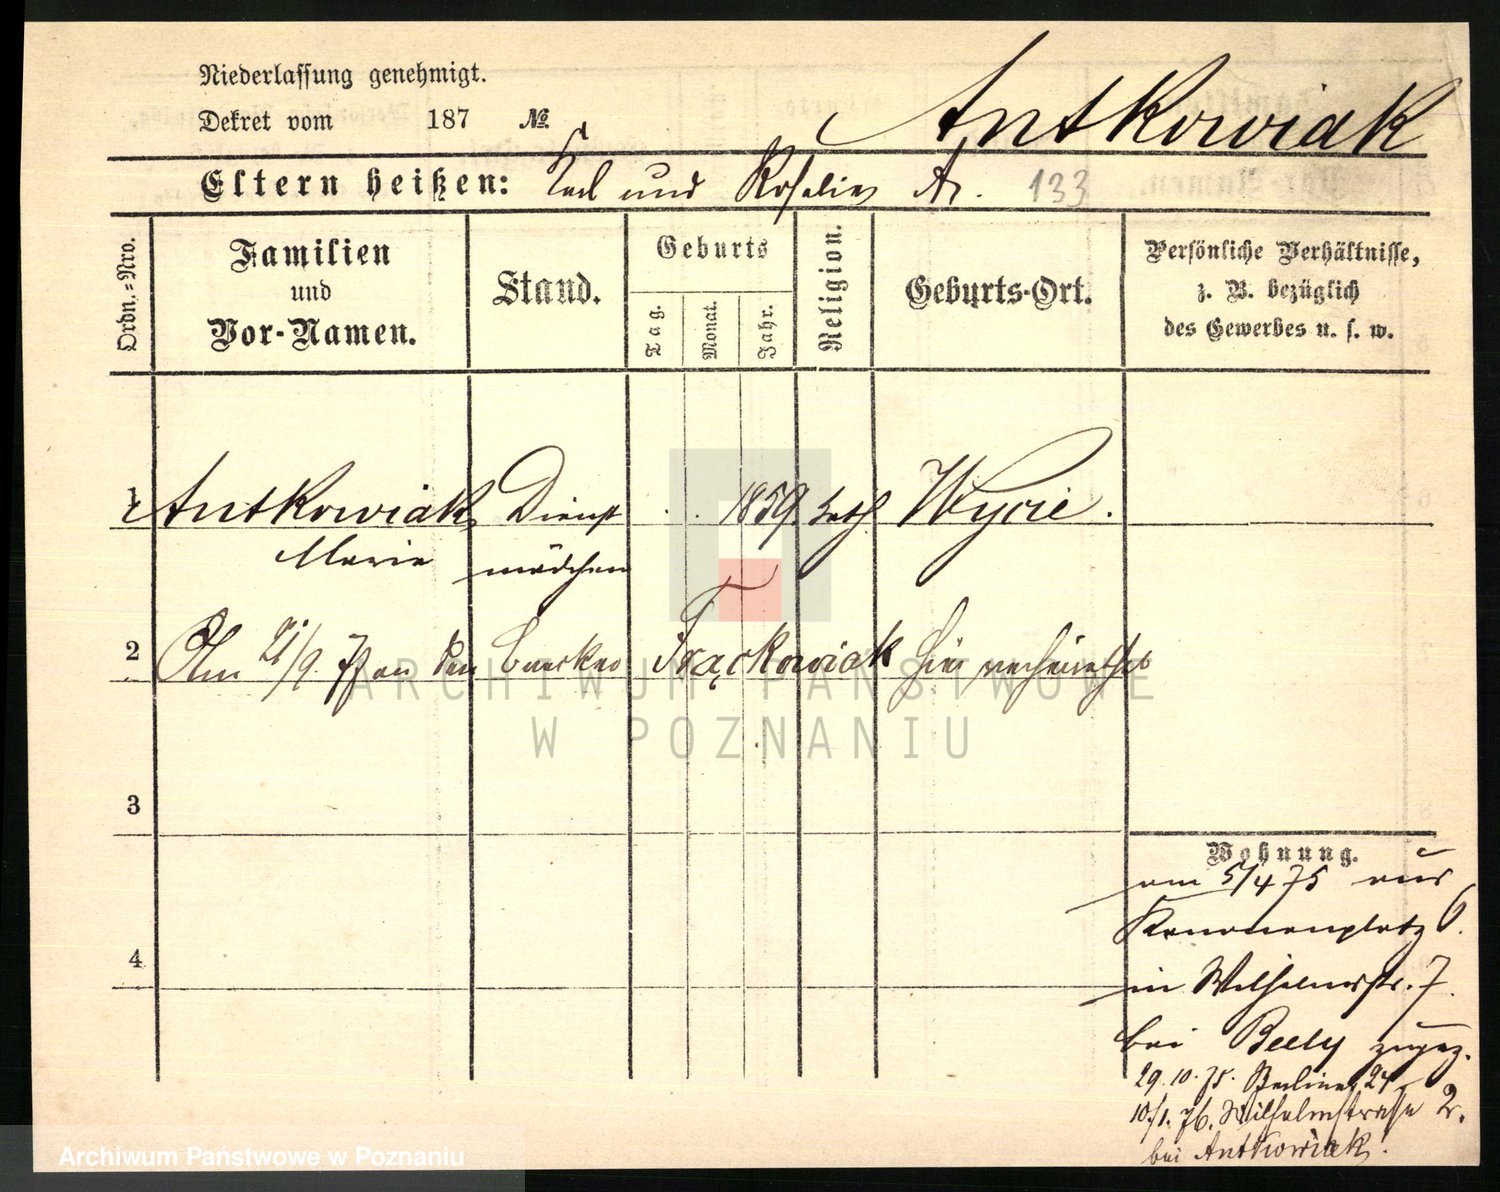 Niederlassung genehmigt.
Dekret vom 187 №
Antkowiak
Eltern heißen: Karl und Rosalie A. 133
Ordn.=Nro.
Familien
und
Vor-Namen.
Stand.
Geburts
Tag.
Monat.
Jahr.
Religion.
Geburts-Ort.
Persönliche Verhältnisse,
z. B. bezüglich
des Gewerbes u. s. w.
1 Antkowiak Dienst . . 1859. kath.
Marie mädchen
2 Am 21/9. 77 an den Frąckowiak hier verheirathet
3
4
Wohnung.
am 5/4 75 aus
Kanonenplatz 6.
in Wilhelmstr. 7.
bei Beely zugez.
29.10.75. Berliner 24
10/1. 76. Wilhelmstraße 2.
bei Antkowiak.
ARCHIWUM PAŃSTWOWE
W POZNANIU
Archiwum Państwowe w Poznaniu